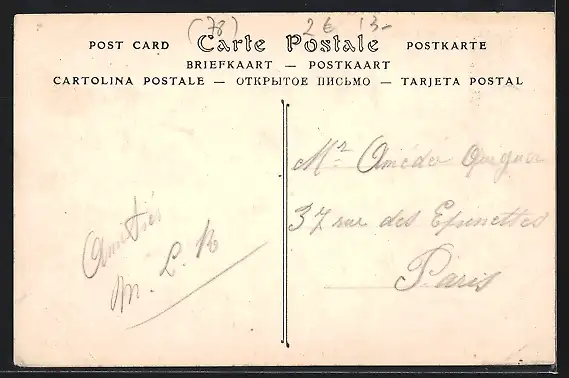 (78) 2€ 13-
POST CARD Carte Postale POSTKARTE
BRIEFKAART — POSTKAART
CARTOLINA POSTALE — ОТКРЫТОЕ ПИСЬМО — TARJETA POSTAL
Mr Amédée
37 rue des Epinettes
Paris
Amitiés
M. L. R